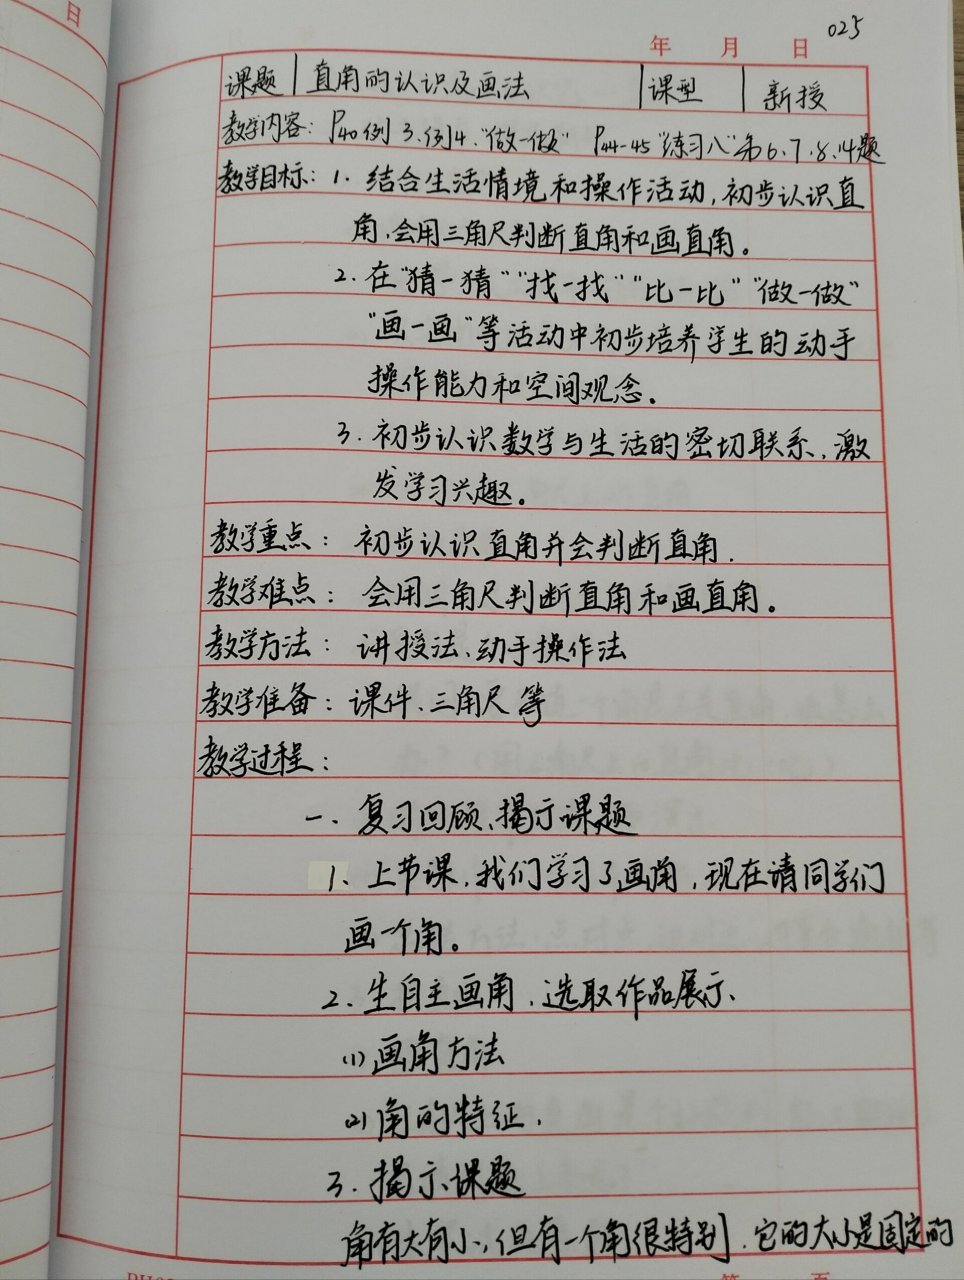 日
025
年 月 日
课题 直角的认识及画法 课型 新授
教学内容：P40例3.例4."做一做" P44-45"练习八"第6.7.8.14题
教学目标：1. 结合生活情境和操作活动,初步认识直
角,会用三角尺判断直角和画直角。
2.在"猜一猜""找一找""比一比""做一做"
"画一画"等活动中初步培养学生的动手
操作能力和空间观念。
3.初步认识数学与生活的密切联系,激
发学习兴趣。
教学重点：初步认识直角并会判断直角.
教学难点：会用三角尺判断直角和画直角。
教学方法：讲授法、动手操作法
教学准备：课件、三角尺等
教学过程：
一、复习回顾、揭示课题
1、上节课,我们学习了画角,现在请同学们
画一个角。
2.生自主画角,选取作品展示、
(1)画角方法
(2)角的特征.
3.揭示课题
角有大有小,但有一个角很特别,它的大小是固定的
第 页